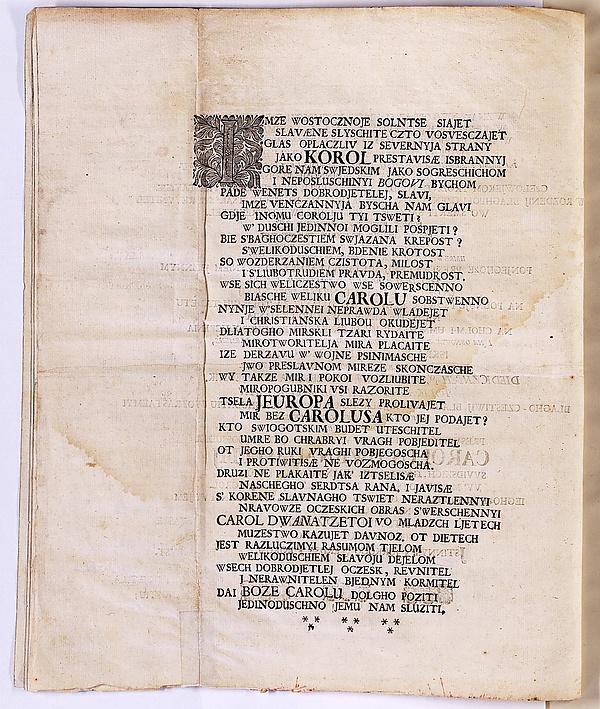 IMZE WOSTOCZNOJE SOLNTSE SIAJET
SLAVÆNE SLYSCHITE CZTO VOSVESCZAJET
GLAS OPLACZLIV IZ SEVERNYJA STRANY
JAKO KOROL PRESTAVISÆ ISBRANNYJ
GORE NAM SWJEDSKIM JAKO SOGRESCHICHOM
I NEPOSLUSCHINYI BOGOVI BYCHOM
PADE WENETS DOBRODJETELEJ, SLAVI,
IMZE VENCZANNYJA BYSCHA NAM GLAVI
GDJE INOMU COROLJU TYI TSWETI?
W' DUSCHI JEDINNOI MOGLILI POSPJETI?
BIE S'BAGHOCZESTIEM SWJAZANA KREPOST?
S'WELIKODUSCHIEM, BDENIE KROTOST
SO WOZDERZANIEM CZISTOTA, MILOST
I S'LIUBOTRUDIEM PRAVDA, PREMUDROST.
WSE SICH WELICZESTWO WSE SOWERSCENNO
BIASCHE WELIKU CAROLU SOBSTWENNO
NYNJE W'SELENNEI NEPRAWDA WLADEJET
I CHRISTIANSKA LJUBOU OKUDEJET.
DLIATOGHO MIRSKLI TZARI RYDAITE
MIROTWORITELJA MIRA PLACAITE
IZE DERZAVU W' WOJNE PSINIMASCHE
JWO PRESLAVNOM MIREZE SKONCZASCHE
WY TAKZE MIR I POKOI VOZLIUBITE
MIROPOGUBNIKI VSI RAZORITE
TSELA JEUROPA SLEZY PROLIVAJET
MIR BEZ CAROLUSA KTO JEJ PODAJET?
KTO SWIOGOTSKIM BUDET UTESCHITEL
UMRE BO CHRABRYI VRAGH POBJEDITEL
OT JEGHO RUKI VRAGHI POBJEGOSCHA
I PROTIWITISÆ NE VOZMOGOSCHA.
DRUZI NE PLAKAITE JAK' IZTSELISÆ
NASCHEGHO SERDTSA RANA, I JAVISÆ
S' KORENE SLAVNAGHO TSWIET NERAZTLENNYI
NRAVOWZE OCZESKICH OBRAS S'WERSCHENNYI
CAROL DWANATZETOI VO MLADZCH LJETECH
MUZESTWO KAZUJET DAVNOZ, OT DIETECH
JEST RAZLUCZIMYI RASUMOM TJELOM
WELIKODUSCHIEM SLAVOJU DEJELOM
WSECH DOBRODJETLEJ OCZESK, REVNITEL
J NERAWNITELEN BJEDNYM KORMITEL
DAI BOZE CAROLU DOLGHO POZITI
JEDINODUSCHNO JEMU NAM SLUZITI,